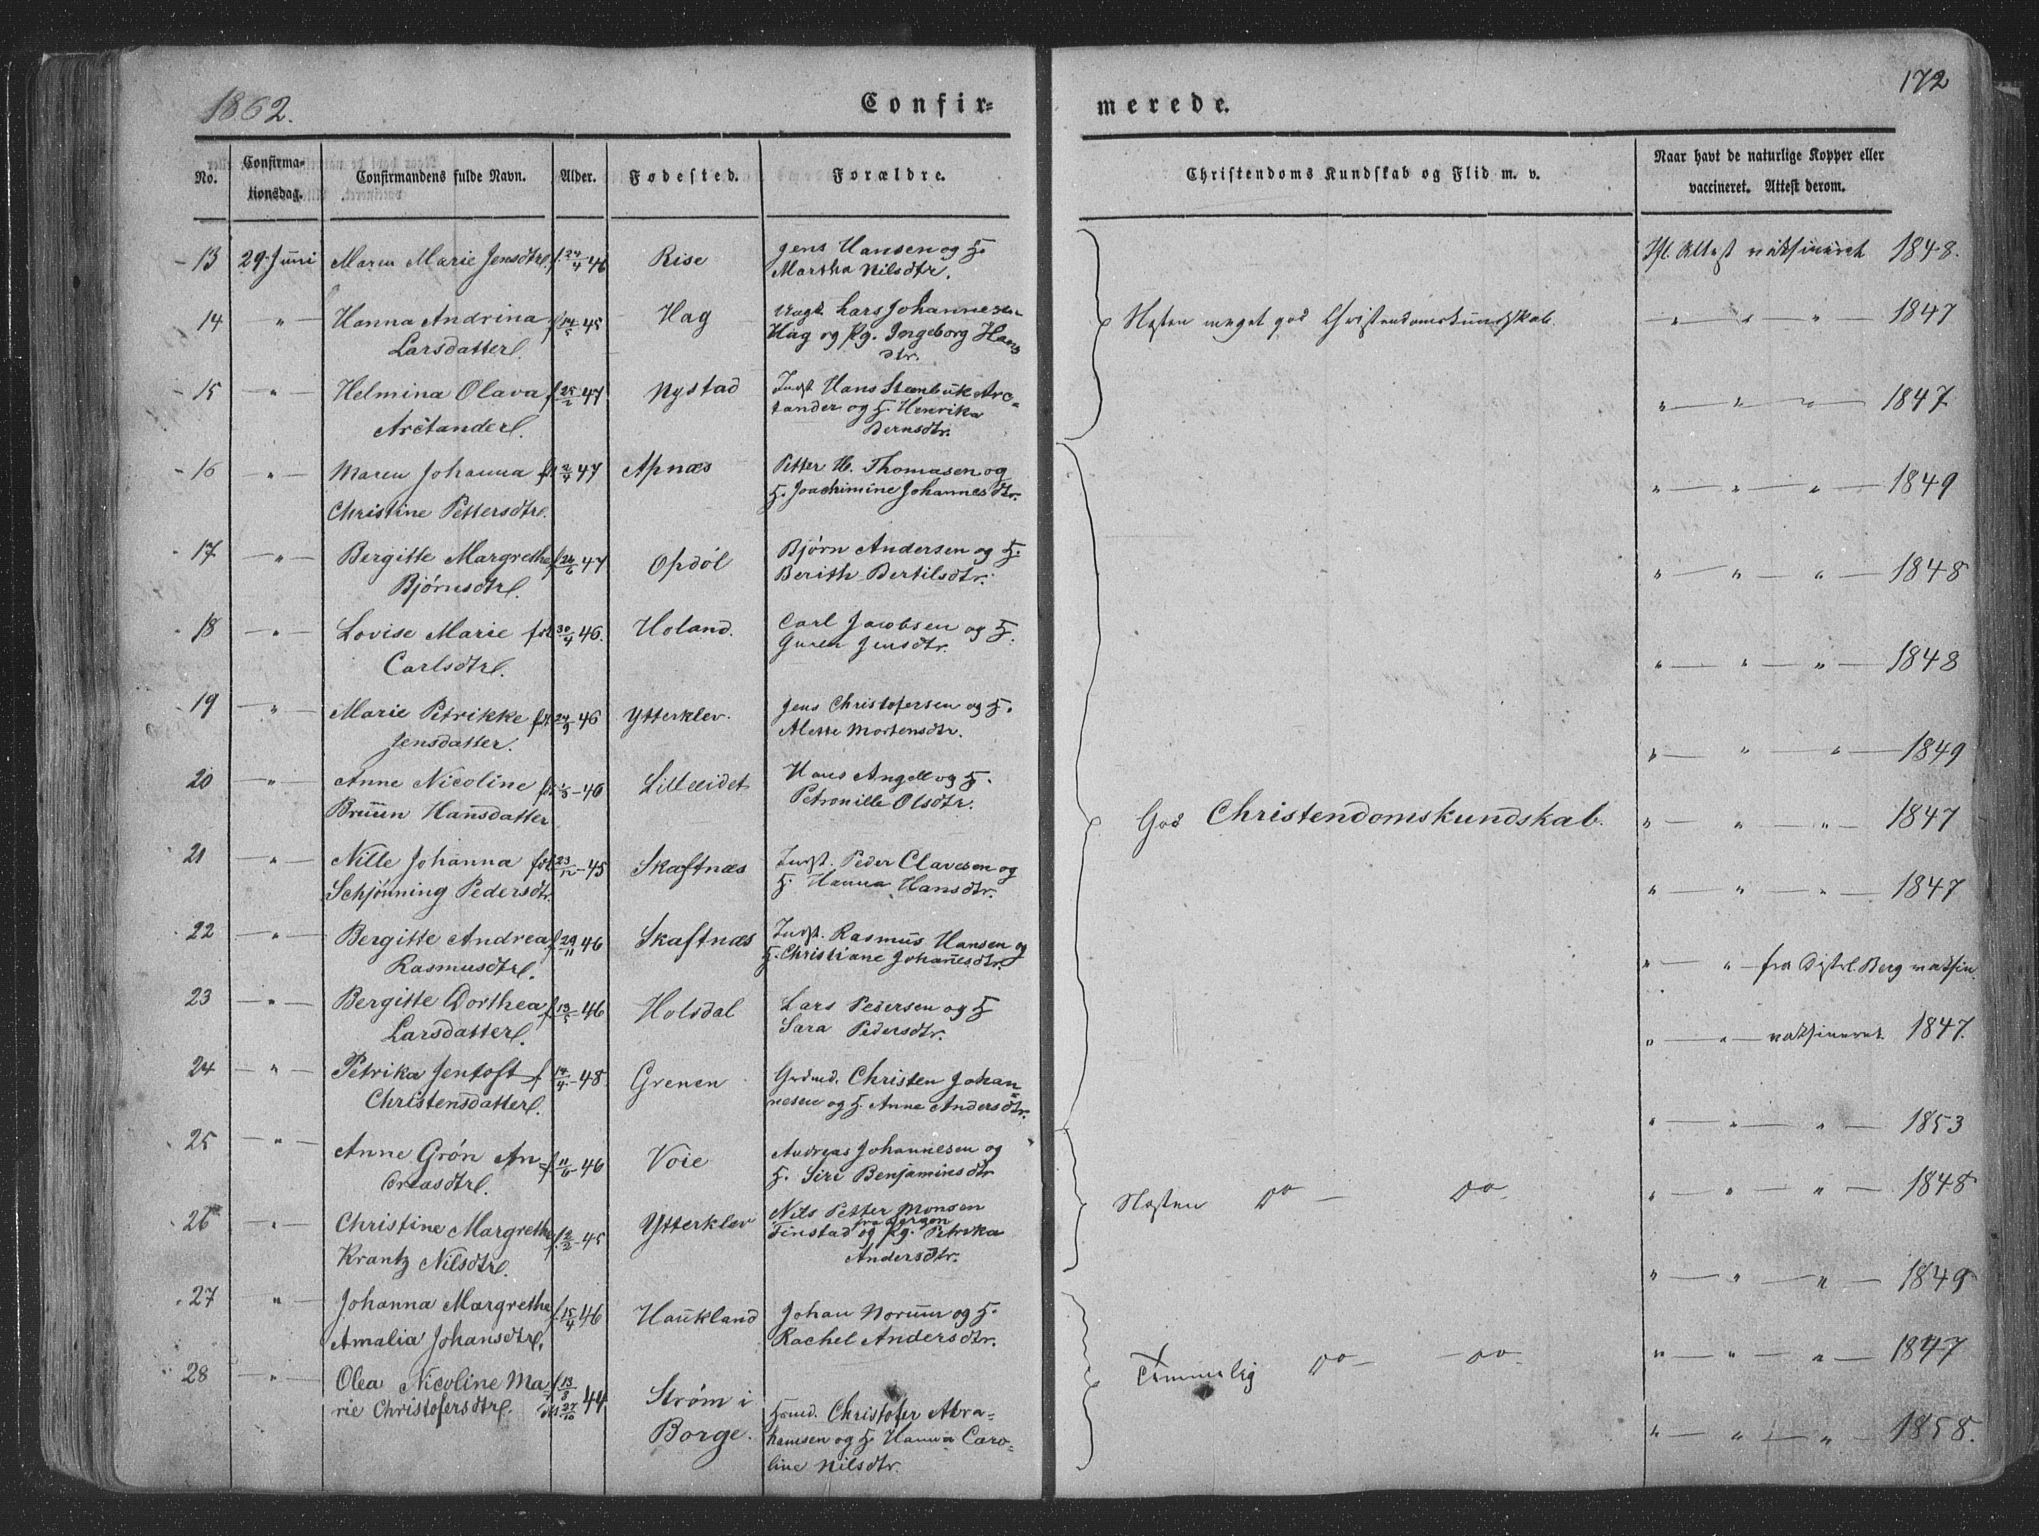 1862.
Confir=
merede.
172
No.
Confirma-
tionsdag.
Confirmandens fulde Navn.
Alder.
Fødested.
Forældre.
Christendoms Kundskab og Flid m. v.
Naar havt de naturlige Kopper eller
vaccineret. Attest derom.
13 29 Juni Maren Marie Jensdtr. f. 24/4 46 Rise Jens Hansen og H.
Martha Nilsdtr.
Ifl. Attest vaksineret 1848.
14 " Hanna Andrina f 14/5 45 Hag Lars Johannesen
Larsdatter. Hag og Pg. Ingeborg Hans
dtr.
Næsten meget god Christendomskundskab.
" " " 1847
15 " Helmina Olava f 25/2 47 Nystad Indst. Hans Steenbuk Arc=
Arctander. tander og H. Henrika
Berns dtr.
" " " 1847
16 " Maren Johanna f 2/4 47 Apnæs Petter H. Thomasen og
Christine Pettersdtr. H. Joachimine Johannesdtr.
" " " 1849
17 " Bergitte Margrethe f 26/6 47 Opdøl Bjørn Andersen og H.
Bjørnsdtr. Berith Bertilsdtr.
" " " 1848
18 " Lovise Marie fdt 30/4 46. Holand. Carl Jacobsen og H.
Carlsdtr. Guren Jensdtr.
" " " 1848
19 " Marie Petrikke fdt 24/3 46 Ytterklev. Jens Christofersen og H.
Jensdatter. Alette Mortensdtr.
" " " 1849
20 " Anne Nicoline 46 Lilleeidet Hans Angell og H.
Bruun Hansdatter Petronille Olsdtr.
God Christendomskundskab.
" " " 1847
21 " Nille Johanna fdt 23/12 45 Skaftnæs Indst. Peder Clavesen og
Schjønning Pedersdtr. H. Hanna Hansdtr.
" " " 1847
22 " Bergitte Andrea f 29/11 46 Skaftnæs Indst. Rasmus Hansen og
Rasmusdtr. H. Christiane Johannesdtr.
" " fra Distrl. Berg vaksin
23 " Bergitte Dorthea f 13/5 46 Holsdal Lars Pedersen og H
Larsdatter. Sara Pedersdtr.
" " vaksineret 1847.
24 " Petrika Jentoft f 14/4 48 Grenen Grdmd. Christen Johan
Christensdatter. nesen og H. Anne Andersdtr.
" " " 1853
25 " Anne Grøn An= f 11/6 46 Voie Andreas Johannesen og
dreasdtr. H. Siri Benjaminsdtr
Næsten Do Do
" " " 1848
26 " Christine Margrethe f. 2/2 45 Ytterklev Nils Petter Monsen
Krantz Nilsdtr. Finstad fra Bergen og Pg. Petrika
Andersdtr.
" " " 1849
27 " Johanna Margrethe f. 15/4 46 Haukland Johan Norum og H.
Amalia Johansdtr. Rachel Andersdtr.
Temmelig Do Do
" " " 1847
28 " Olea Nicoline Ma f 13/8 44 Strøm i
rie Christofersdtr. døb 27/10 Borge.
Hsmd. Christofer Abra=
hamsen og H. Hanna Caro=
line Nilsdtr.
" " " 1858.